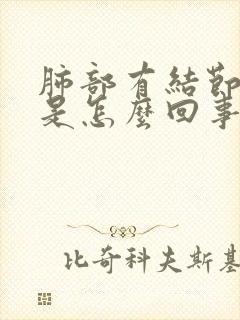 肺部有結節
是怎麼回事
比奇科夫斯基